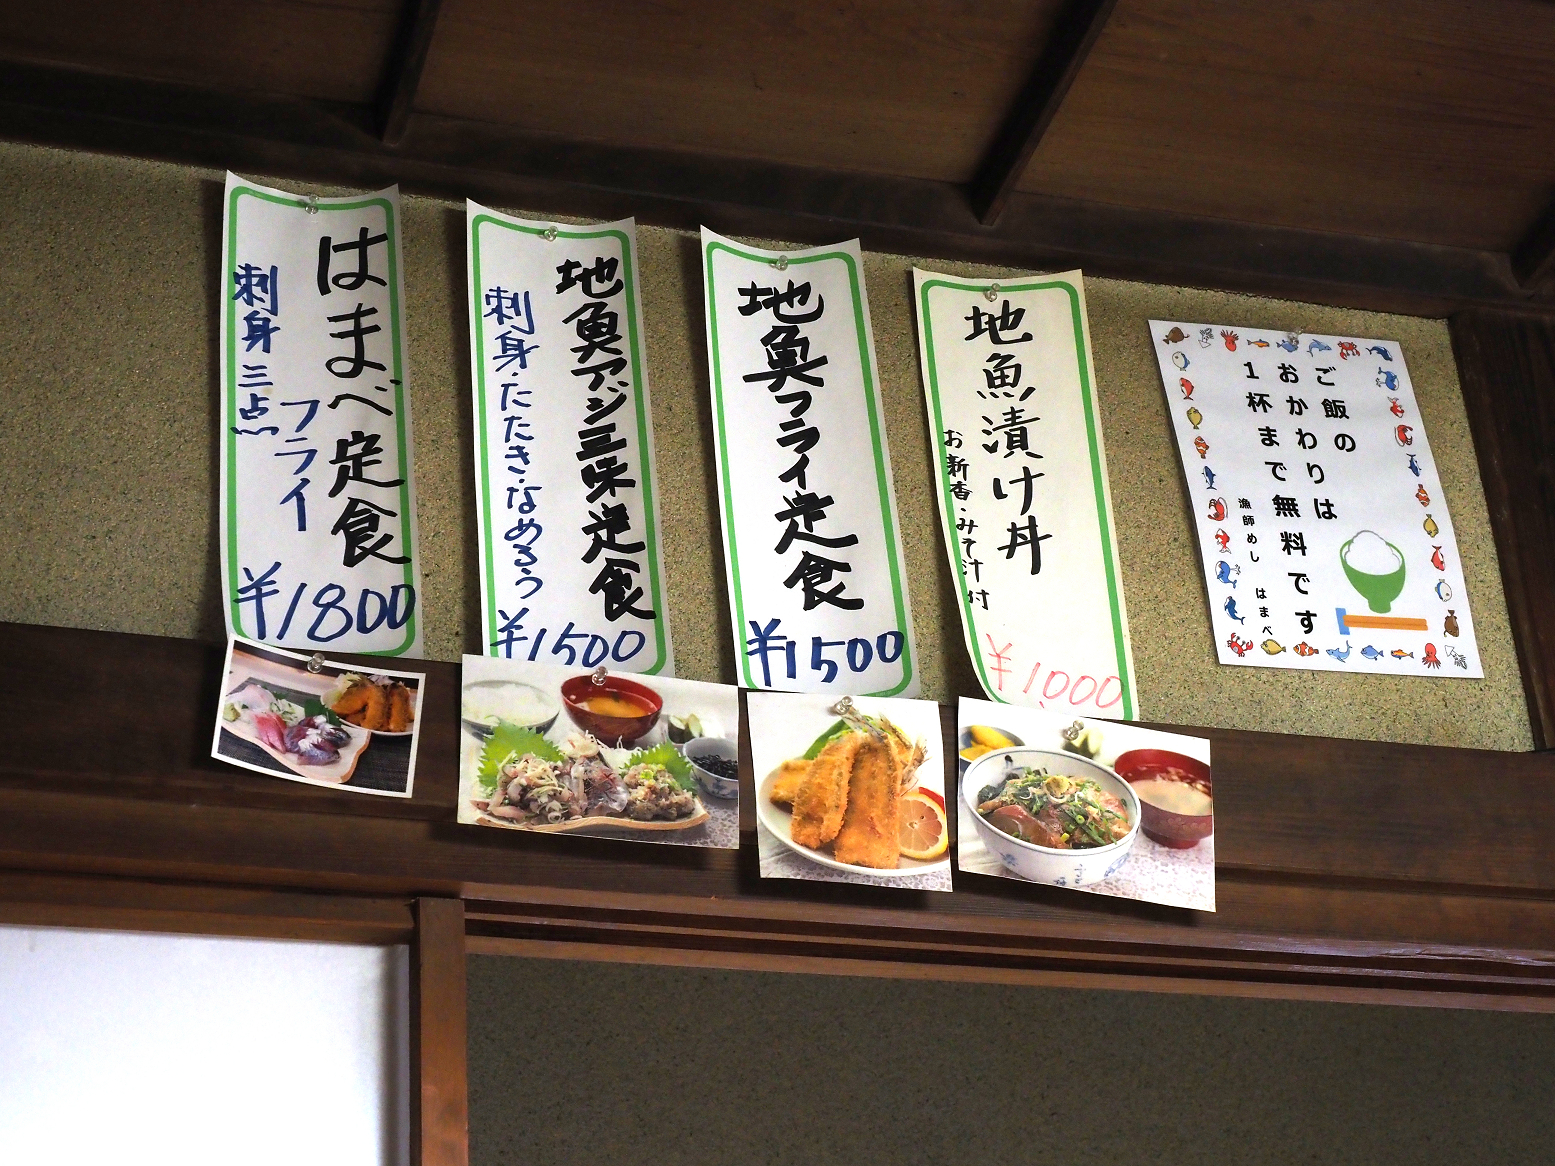 はまべ定食
刺身三点
フライ
¥1800
地魚アジ三昧定食
刺身・たたき・なめろう
¥1500
地魚フライ定食
¥1500
地魚漬け丼
お新香・みそ汁付
¥1,000
ご飯の
おかわりは
1杯まで無料です
漁師めし はまべ